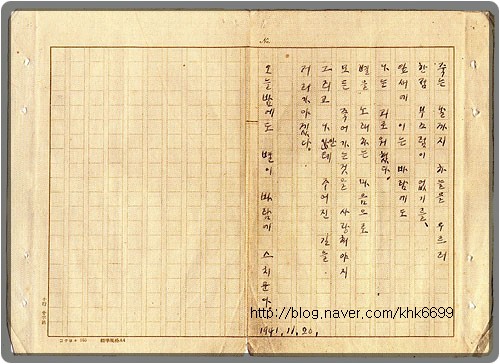 No.
죽는 날까지 하늘을 우르러
한점 부끄럼이 없기를,
잎새에 이는 바람에도
나는 괴로워했다.
별을 노래하는 마음으로
모든 죽어가는것을 사랑해야지
그리고 나안테 주어진 길을
거러가야겠다.
오늘밤에도 별이 바람에 스치운다.
http://blog.naver.com/khk6699
1941.11.20.
コクヨ 標準規格A4